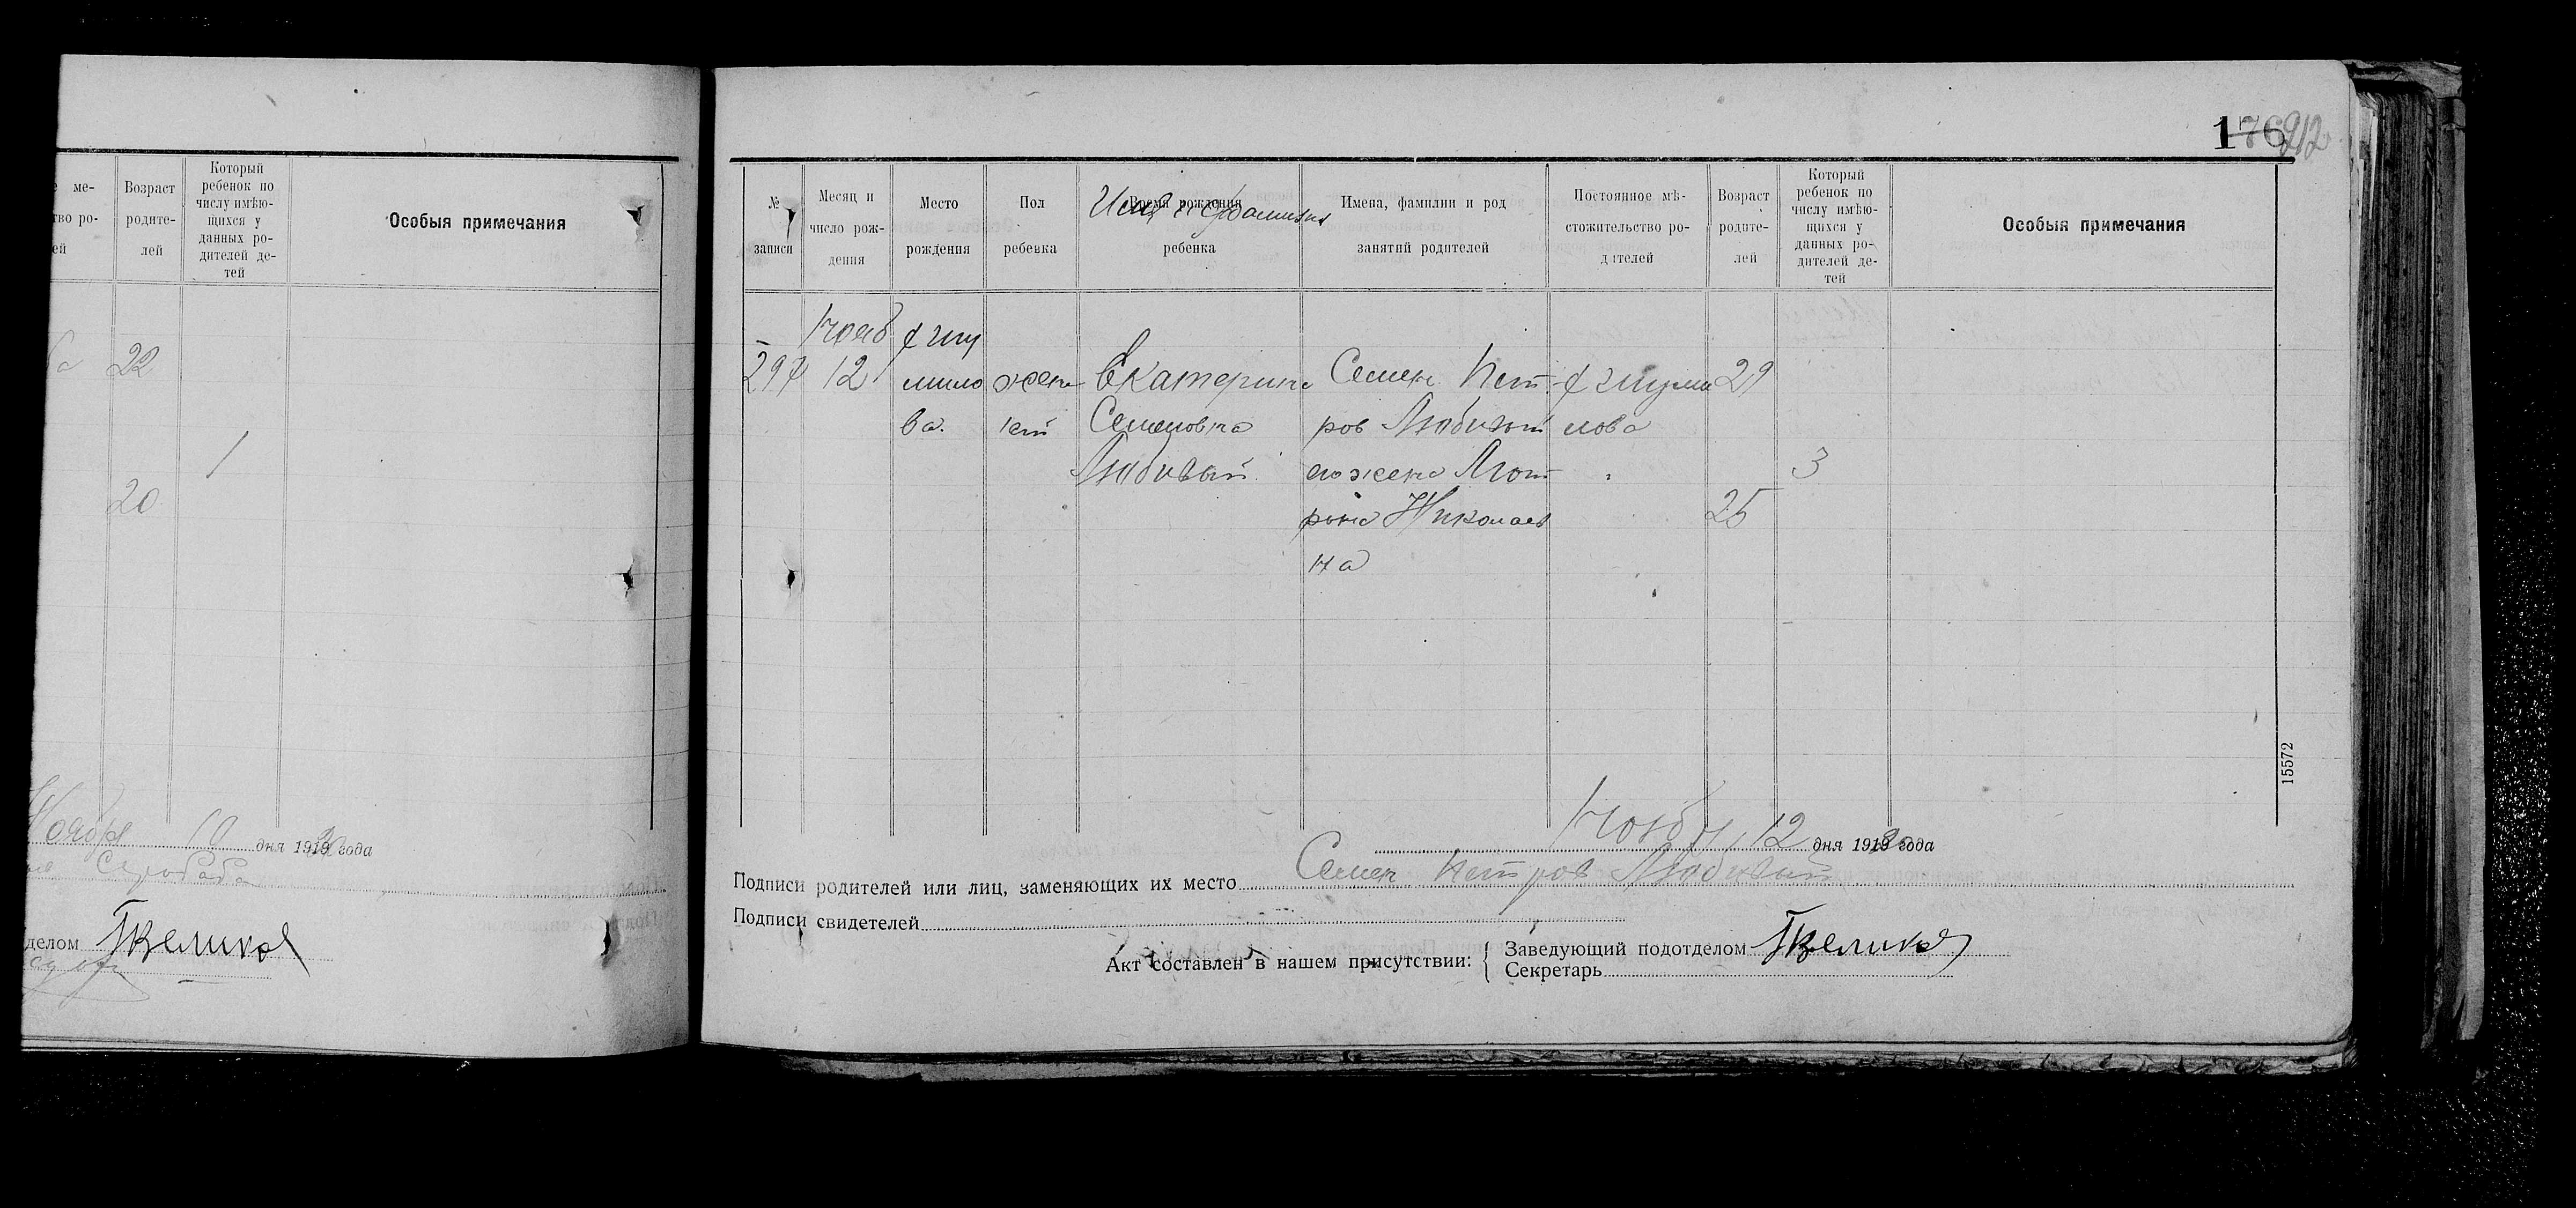 176
212
е ме-
тво ро-
ей
Возраст
родите-
лей
Который
ребенок по
числу имѣю-
щихся у
данных ро-
дителей де-
тей
Особыя примечания
22
1
20
Ноября 10 дня 1919 года
делом
№
записи
Месяц и
число рож-
дения
Место
рождения
Пол
ребенка
Имя и фамилия
Время рождения
ребенка
Имена, фамилии и род
занятий родителей
Постоянное мѣ-
стожительство ро-
дителей
Возраст
родите-
лей
Который
ребенок по
числу имѣю-
щихся у
данных ро-
дителей де-
тей
Особыя примечания
Нояб
297 12 мило жен Екатерина Семен Пет 29
ва. кий Семеновна ров лова
его жена Мот 3
рона Николаев 25
на
15572
Ноября 12 дня 1919 года
Подписи родителей или лиц, заменяющих их место Семен Петров
Подписи свидетелей
Акт составлен в нашем присутствии:
Заведующий подотделом
Секретарь